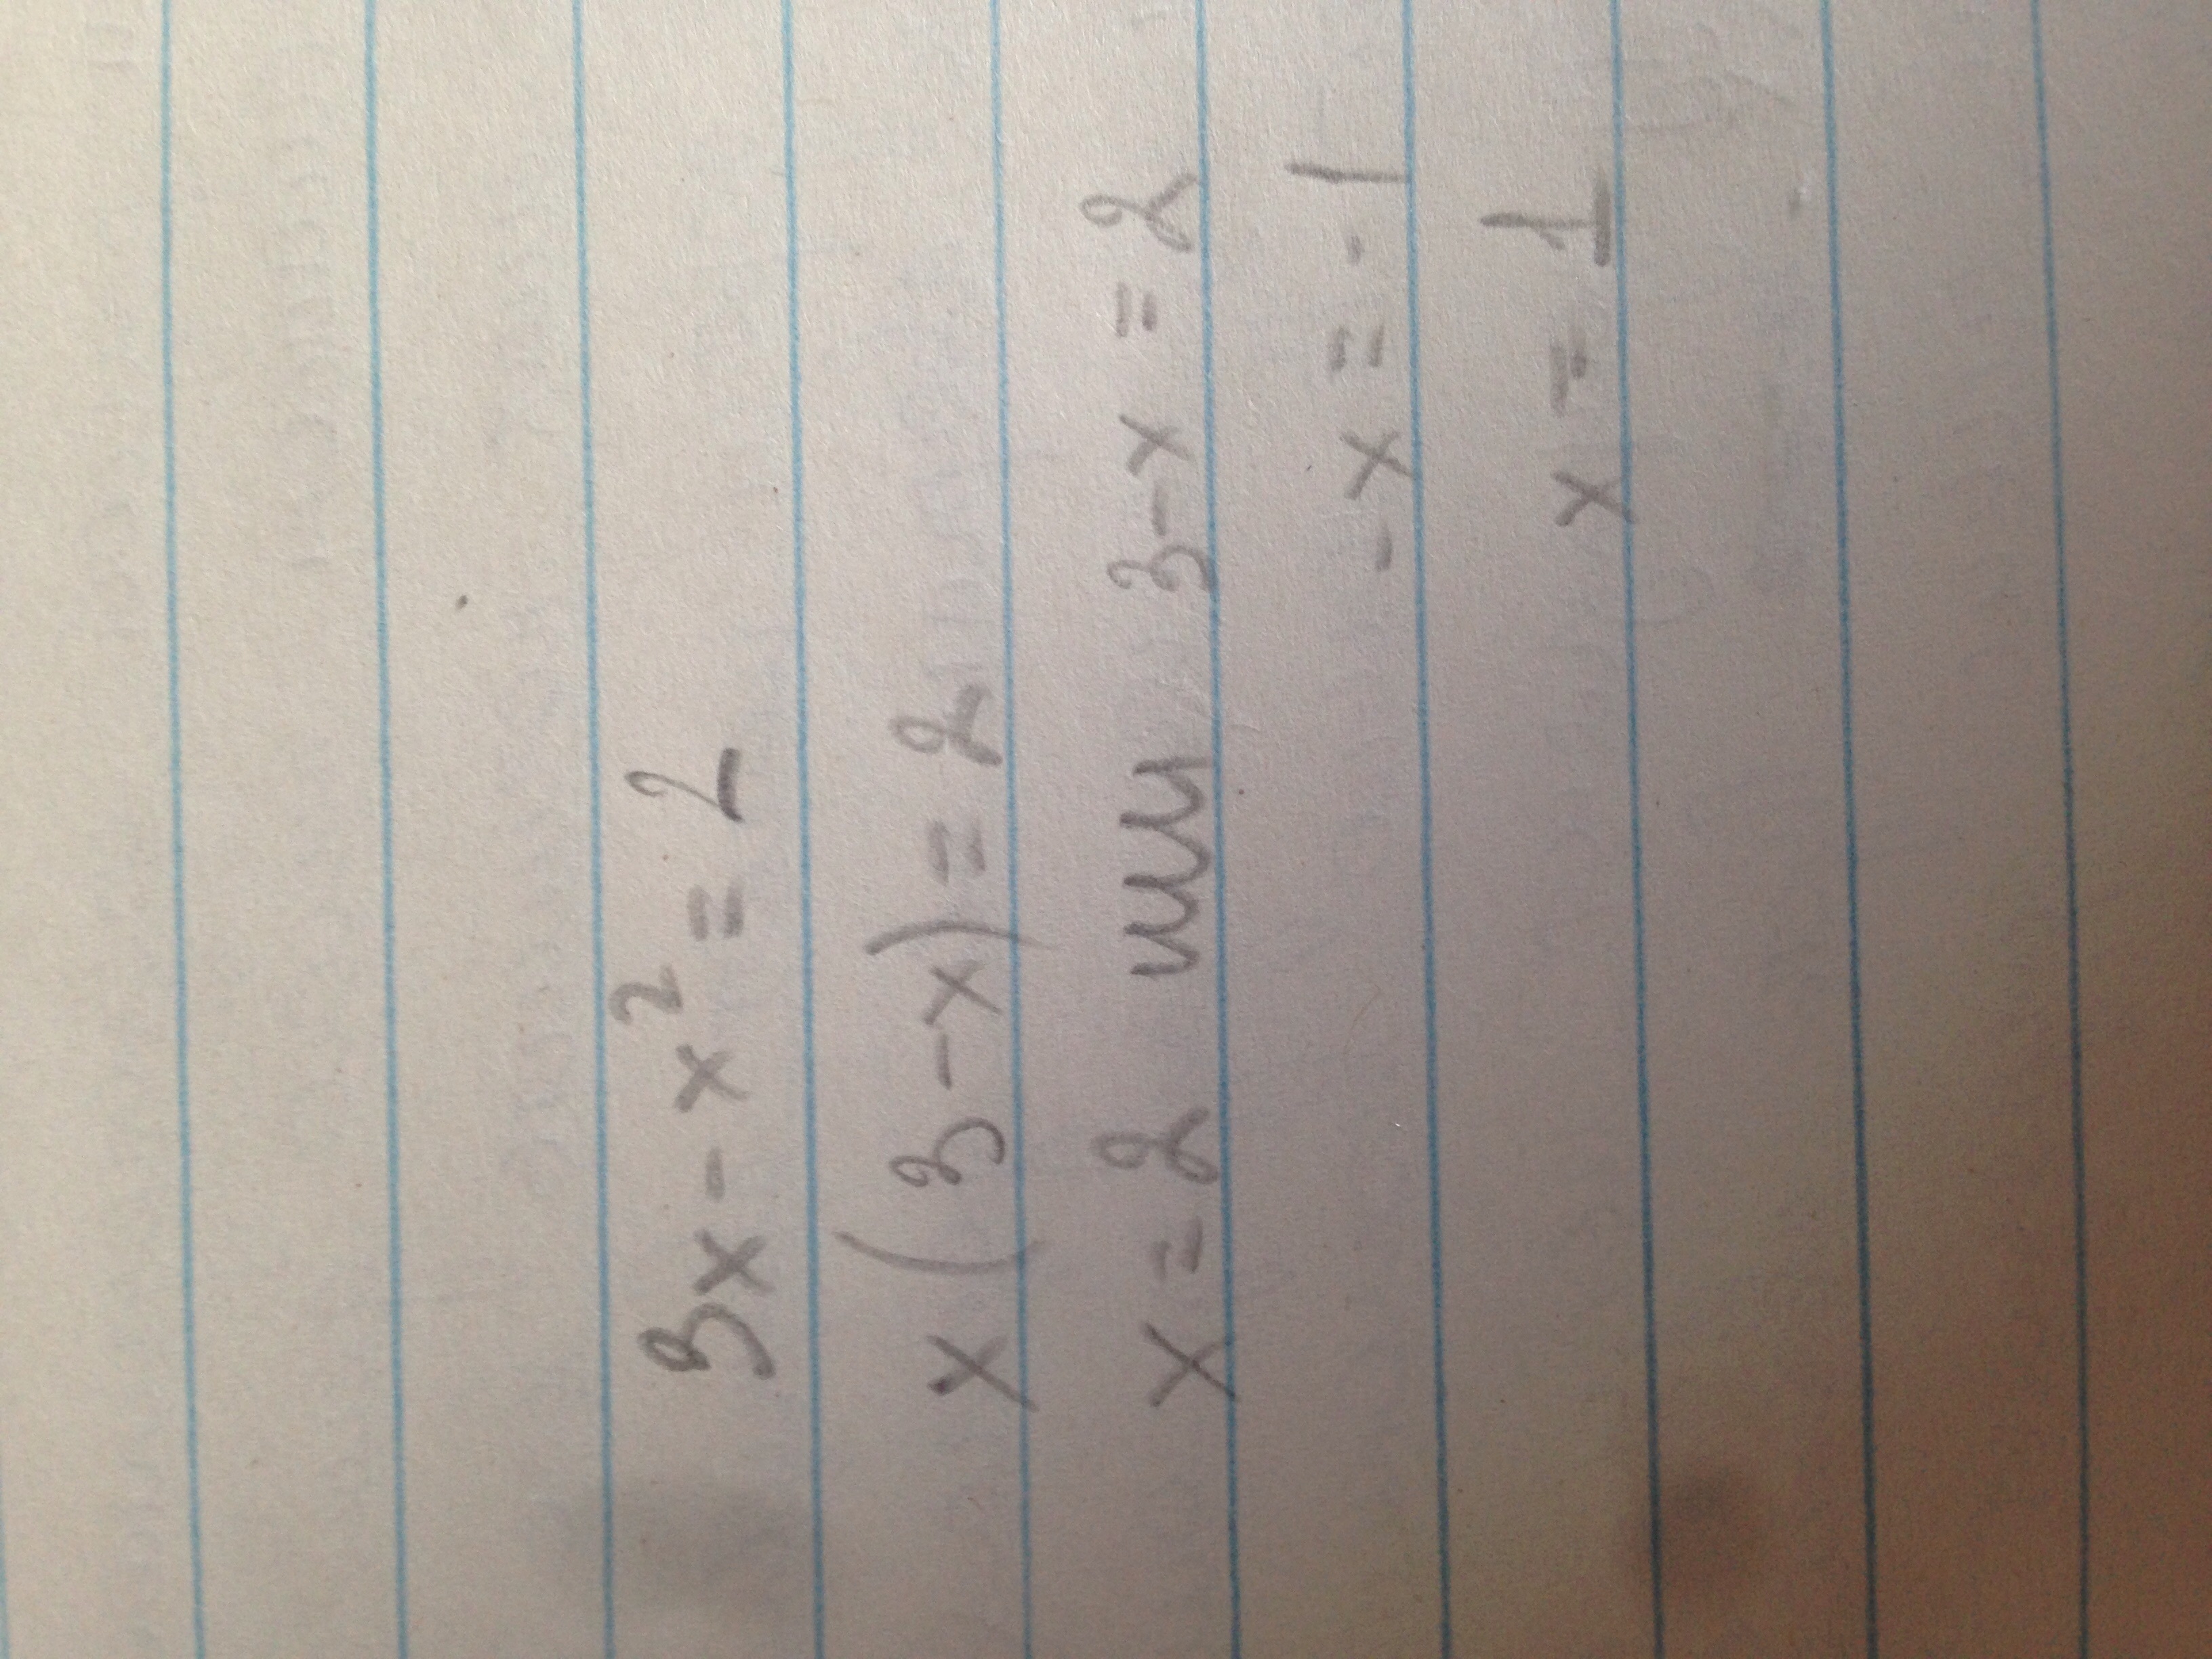 3x - x² = 2
x (3 - x) = 2
x = 2 или 3 - x = 2
- x = - 1
x = 1